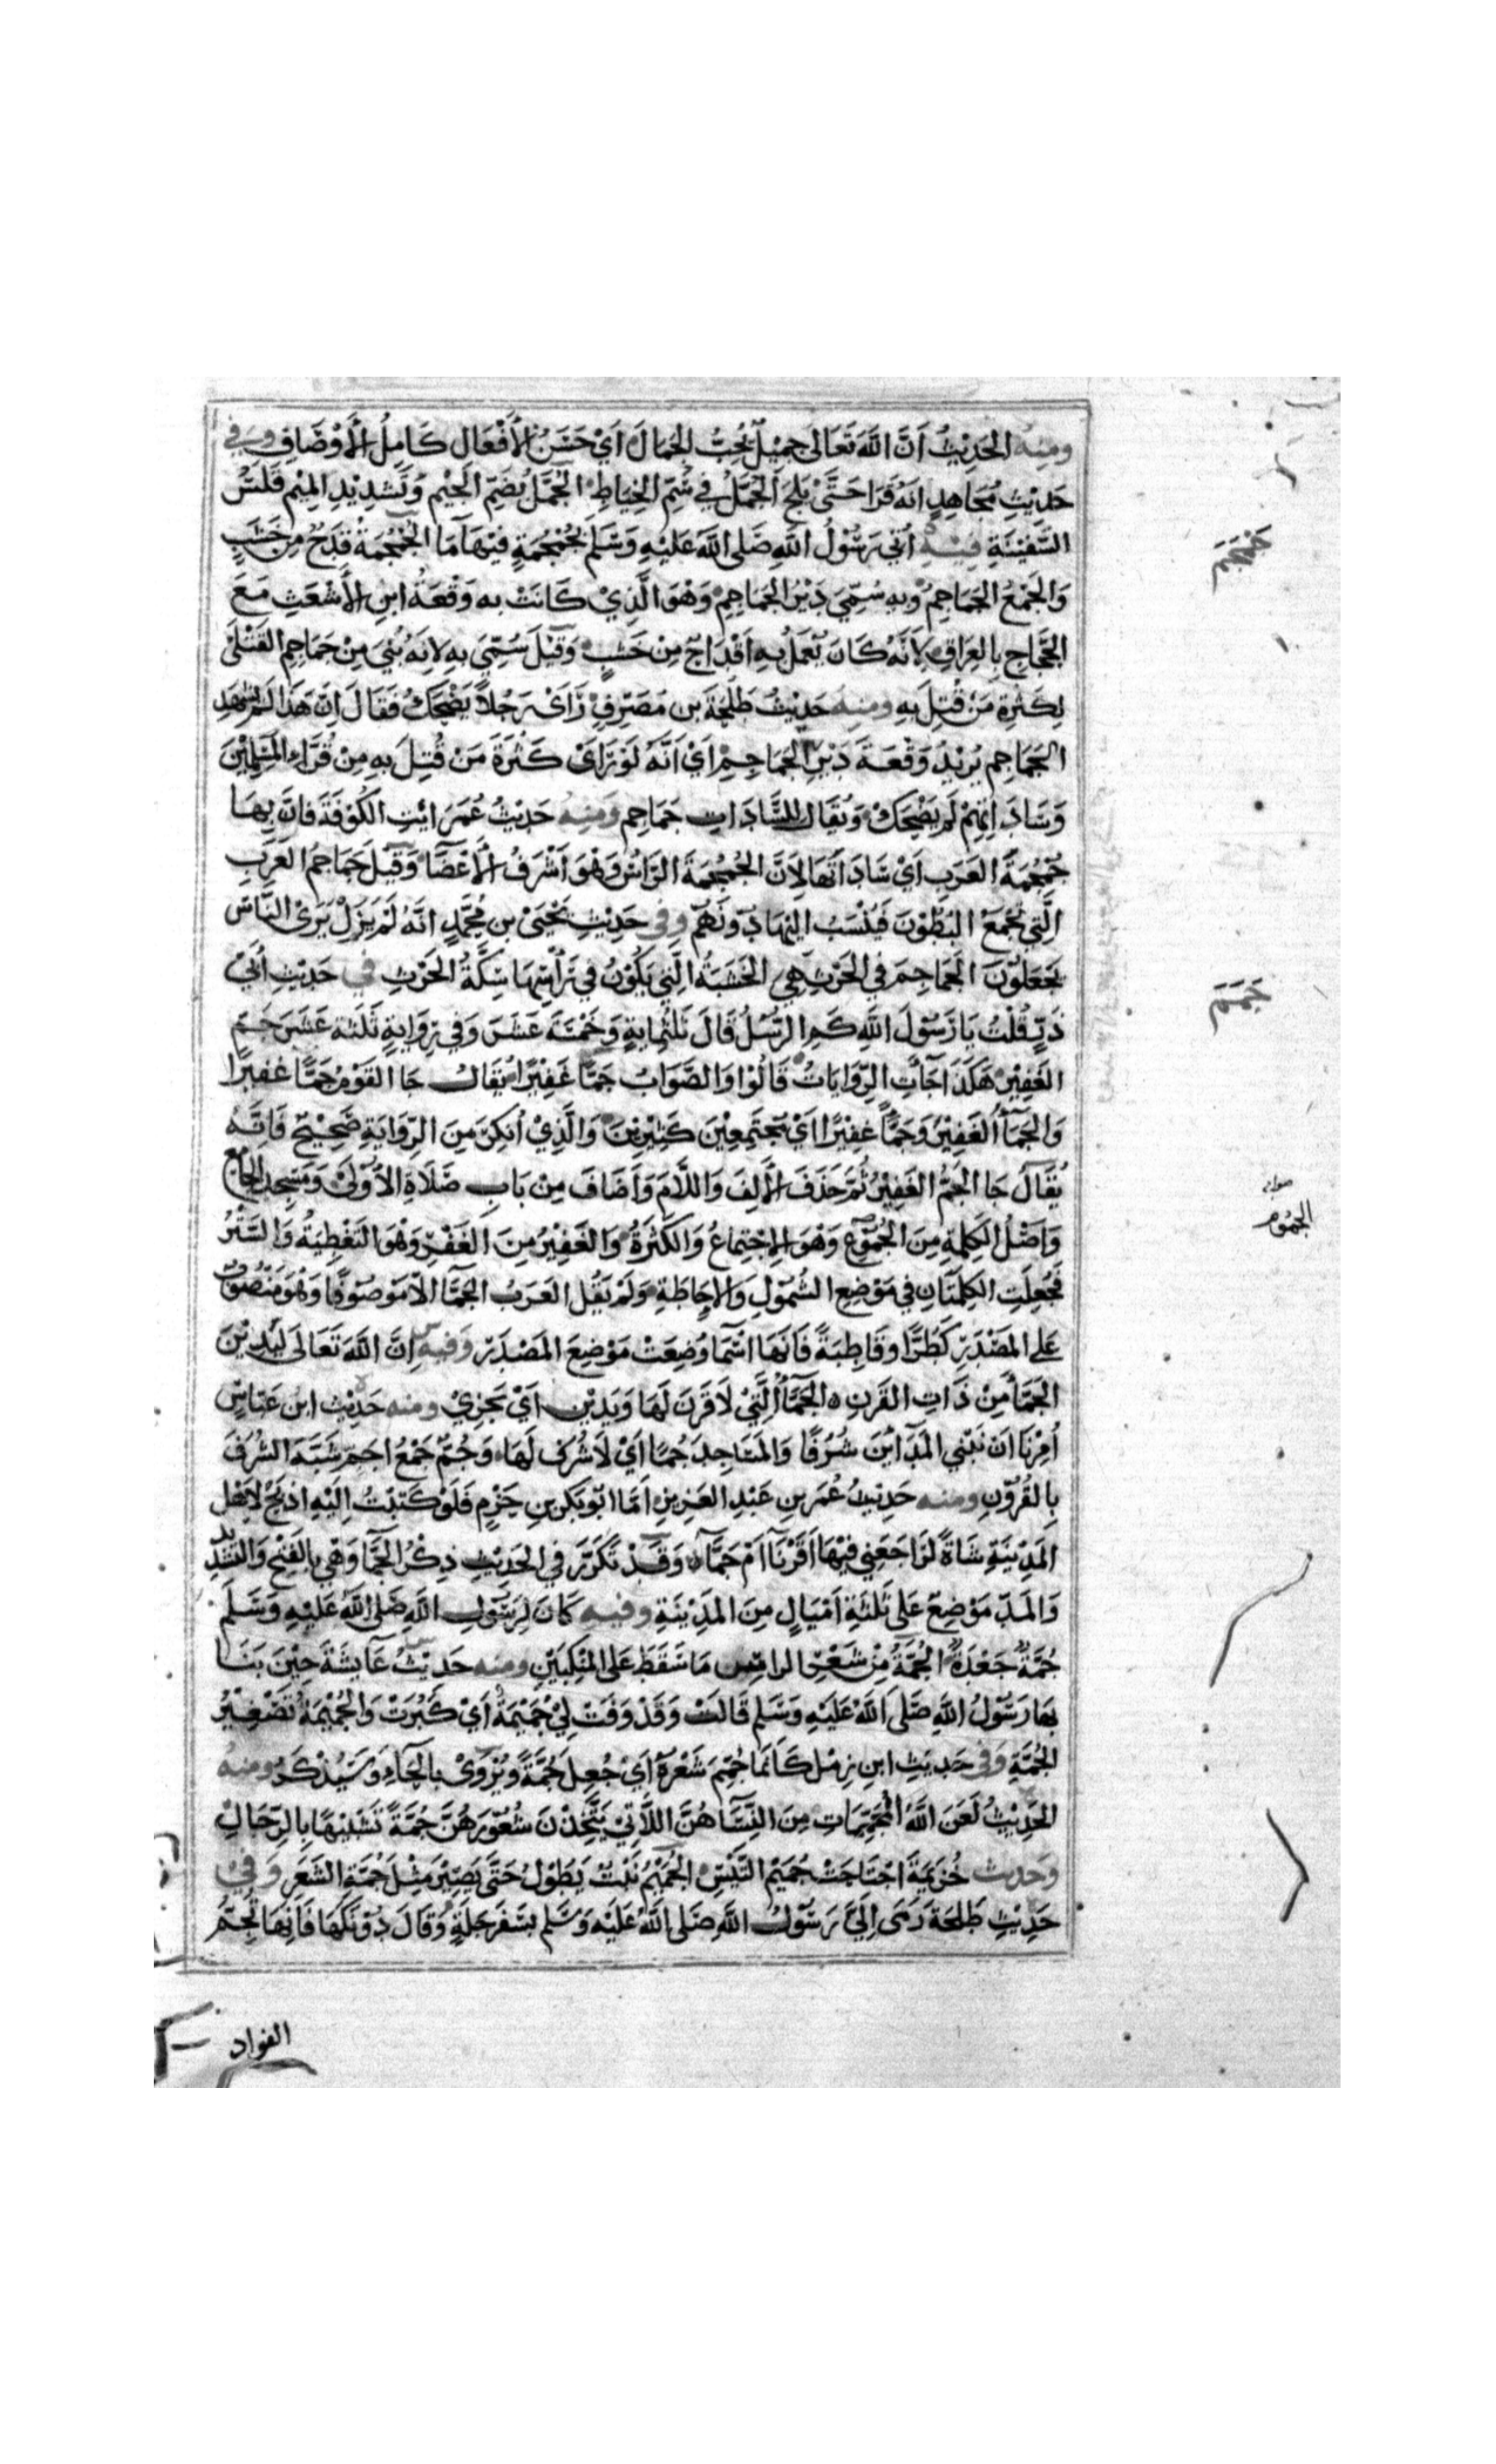 ومنه الحديث أن الله تعالى جميل يحب الجمال أي حسن الأفعال كامل الأوصاف وفي
حديث مجاهد انه قرا حتى يلج الجمل في سم الخياط الجمل بضم الجيم وتشديد الميم قلس
السفينة فيه أتي رسول الله صلى الله عليه وسلم بجمجمة فيها ما الجمجمة قدح من خشب
جمجم
والجمع الجماجم وبه سمي دير الجماجم وهو الذي كانت به وقعة ابن الأشعث مع
الحجاج بالعراق لأنه كان يعمل به اقداح من خشب وقيل سمي به لانه بني من جماجم القتلى
لكثرة من قتل به ومنه حديث طلحة بن مصرف رأى رجلا يضحك فقال ان هذا لم يشهد
الجماجم يريد وقعة دير الجماجم أي أنه لو رأى كثرة من قتل به من قراء المسلمين
وساداتهم لم يضحك ويقال للسادات جماجم ومنه حديث عمر ائت الكوفة فان بها
جمجمة العرب أي ساداتها لأن الجمجمة الراس وهو أشرف الأعضا وقيل جماجم العرب
التي تجمع البطون فينسب اليها دونهم وفي حديث يحيى بن محمد انه لم يزل يرى الناس
يجعلون الجماجم في الحرث هي الخشبة التي يكون في رأسها سكة الحرث في حديث أبي
جمم
ذر قلت يا رسول الله كم الرسل قال ثلثماية وخمسة عشر وفي رواية ثلثة عشر جم
الغفير هكذا جاءت الروايات قالوا والصواب جما غفيرا يقال جا القوم جما غفيرا
والجماء الغفير وجما غفيرا اي مجتمعين كثيرين والذي أنكر من الرواية صحيح فانه
يقال جا الجم الغفير ثم حذف الألف واللام وأضاف من باب صلاة الأولى ومسجد الجامع
صوابه
الجموم
وأصل الكلمة من الجموع وهو الاجتماع والكثرة والغفير من الغفر وهو التغطية والستر
فجعلت الكلمتان في موضع الشمول والإحاطة ولم يقل العرب الجما الا موصوفا وهو منصوب
على المصدر كطرا وقاطبة فانها اسما وضعت موضع المصدر وفيه ان الله تعالى ليدين
الجما من ذات القرن الجماء التي لا قرن لها ويدين أي يجزي ومنه حديث ابن عباس
أمرنا ان نبني المداين شرفا والمساجد جما أي لا شرف لها وجم جمع اجم شبه الشرف
بالقرون ومنه حديث عمر بن عبد العزيز أما ابو بكر بن حزم فلو كتبت اليه اذبح لاهل
المدينة شاة لراجعني فيها أقرنا أم جما وقد تكرر في الحديث ذكر الجما وهي بالفتح والتشديد
والمد موضع على ثلثة اميال من المدينة وفيه كان لرسول الله صلى الله عليه وسلم
جمة جعدة الجمة من شعر الراس ما سقط على المنكبين ومنه حديث عايشة حين بنا
بها رسول الله صلى الله عليه وسلم قالت وقد وفت لي جميمة أي كبرت والجميمة تصغير
الجمة وفي حديث ابن زمل كأنما جمم شعره أي جعل جمة ويروى بالحاء وسيذكر ومنه
الحديث لعن الله المجممات من النسا هن اللاتي يتخذن شعورهن جمة تشبيها بالرجال
وحديث خزيمة اجتاحت جميم اليبس الجميم نبت يطول حتى يصير مثل جمة الشعر وفي
حديث طلحة رمى إلي رسول الله صلى الله عليه وسلم بسفرجلة وقال دونكها فانها تجم
الفواد